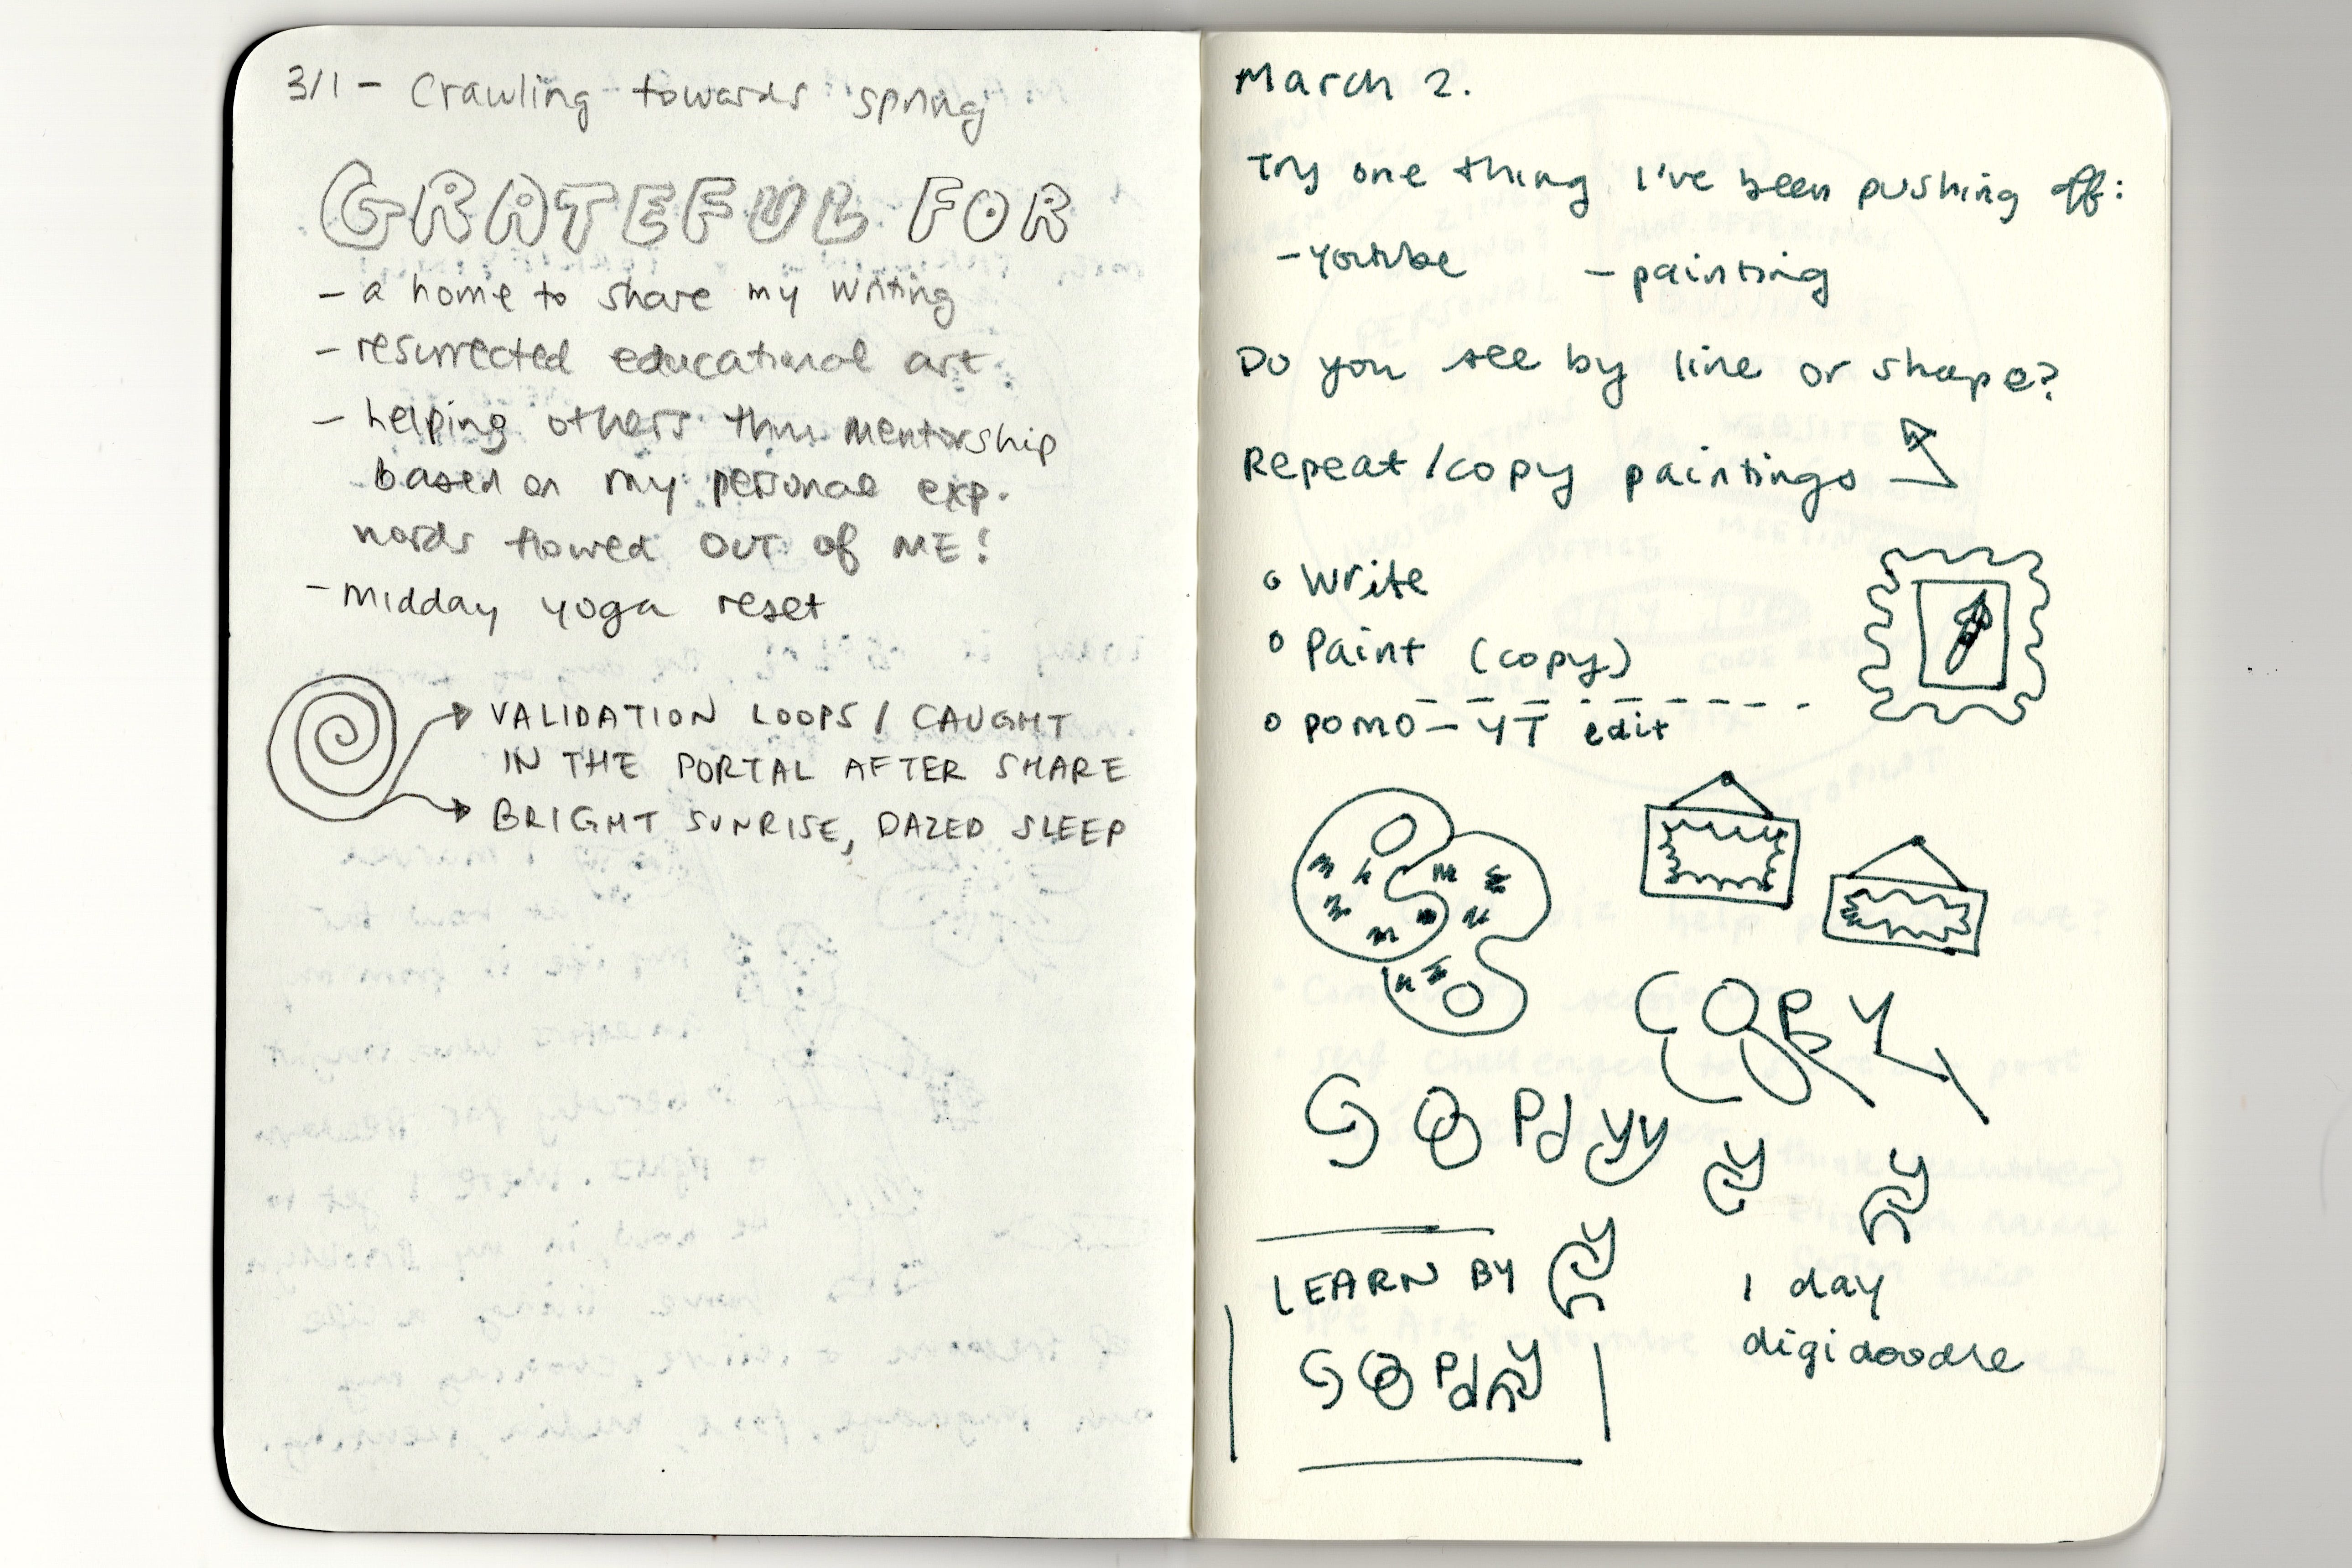 3/1 - Crawling towards spring
GRATEFUL FOR
- a home to share my writing
- resurrected educational art
- helping others thru mentorship
based on my personal exp.
words flowed OUT of ME!
- midday yoga reset
VALIDATION LOOPS / CAUGHT
IN THE PORTAL AFTER SHARE
BRIGHT SUNRISE, DAZED SLEEP
March 2.
Try one thing I've been pushing off:
- youtube - painting
Do you see by line or shape?
Repeat/copy paintings
o Write
o Paint (copy)
o pomo - YT edit
COPY
COPY
LEARN BY
COPY
1 day
digidoodle